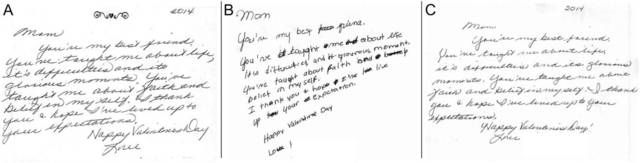 A
2014
Mom
You're my best friend.
You've taught me about life,
it's difficulties and its
glorious moments. You've
taught me about faith and
belief in my self. I thank
you & hope I've lived up to
your expectations.
Happy Valentines Day
Love
B
Mom
You're my best friend.
You've taught me about life
its difficulties and glourious moment.
You've taught about faith and
belief in myself.
I thank you & hope I live
up your Expectation.
Happy Valentine Day
Love !
C
2014
Mom
You're my best friend.
You've taught me about life,
it's difficulties and its glorious
moments. You've taught me about
faith and belief in my self. I thank
you & hope I've lived up to your
expectations.
Happy Valentines Day!
Love